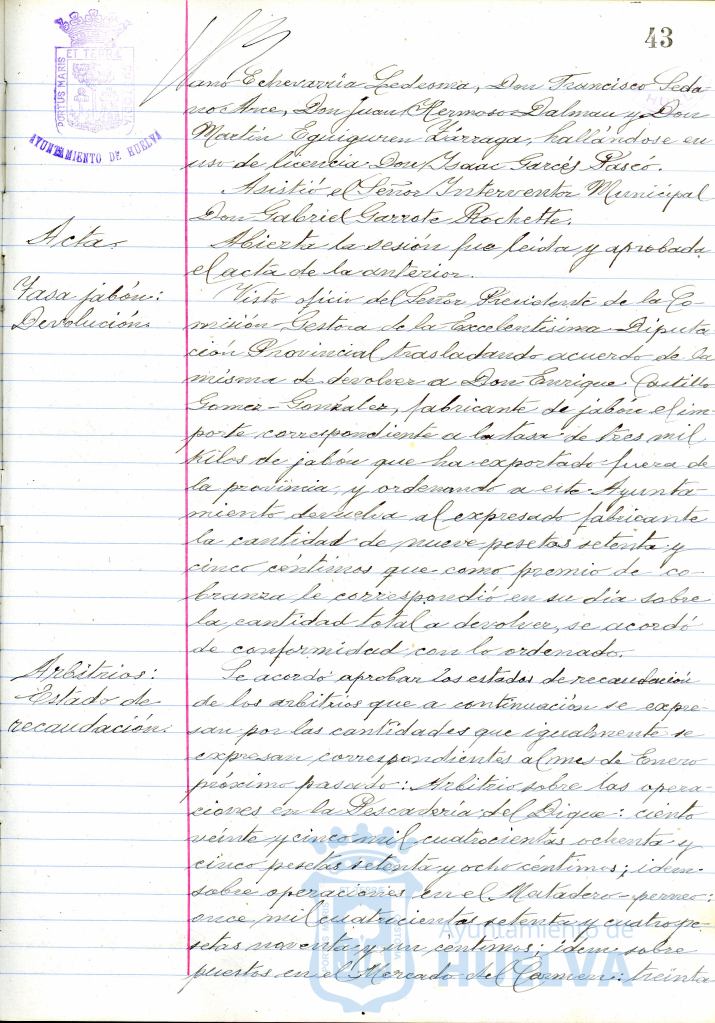 43
PORTUS MARIS
ET TERRÆ
CUSTODIA
AYUNTAMIENTO DE HUELVA
Echevarría Ledesma, Don Francisco Seda
no Arce, Don Juan Hermoso Dalmau y Don
Martín Eguiguren Zárraga, hallándose en
uso de licencia Don Isaac Garcés Pascó.
Asistió el Señor Interventor Municipal
Don Gabriel Garrote Rochette.
Acta.
Abierta la sesión fue leída y aprobada
el acta de la anterior.
Tasa jabón:
Devolución.
Visto oficio del Señor Presidente de la Co-
misión Gestora de la Excelentísima Diputa
ción Provincial trasladando acuerdo de la
misma de devolver a Don Enrique Castillo
Gomez-González, fabricante de jabón el im-
porte correspondiente a la tasa de tres mil
kilos de jabón que ha exportado fuera de
la provincia, y ordenando a este Ayunta-
miento devuelva al expresado fabricante
la cantidad de nueve pesetas setenta y
cinco céntimos que como premio de co-
branza le correspondió en su día sobre
la cantidad total a devolver, se acordó
de conformidad con lo ordenado.
Arbitrios:
Estado de
recaudación.
Se acordó aprobar los estados de recaudación
de los arbitrios que a continuación se expre-
san por las cantidades que igualmente se
expresan correspondientes al mes de Enero
próximo pasado: Arbitrio sobre las opera-
ciones en la Pescadería del Dique: ciento
veinte y cinco mil cuatrocientas ochenta y
cinco pesetas setenta y ocho céntimos; idem
sobre operaciones en el Matadero-perneo:
once mil cuatrocientas setenta y cuatro pe-
setas noventa y un céntimos; idem sobre
puestos en el Mercado del Carmen: treinta
Ayuntamiento de
HUELVA